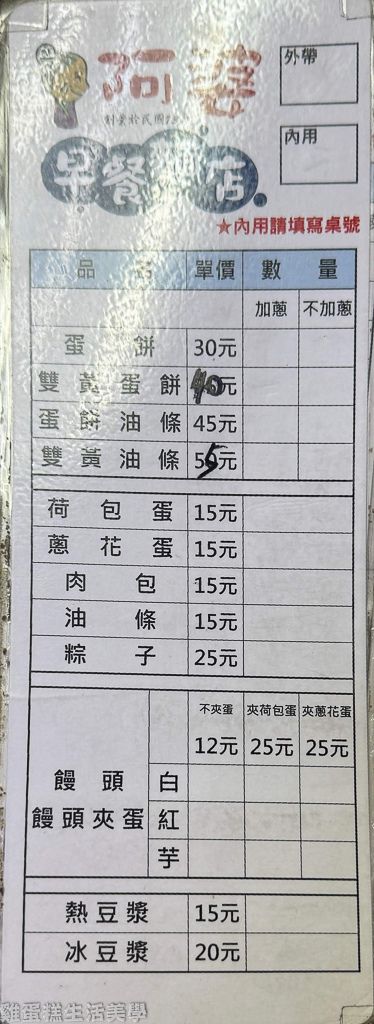 阿婆
外帶
創業於民國
內用
早餐 店
★內用請填寫桌號
品 名 單價 數 量
加蔥 不加蔥
蛋 餅 30元
雙黃蛋餅 40元
蛋餅油條 45元
雙黃油條 55元
荷包蛋 15元
蔥花蛋 15元
肉包 15元
油條 15元
粽子 25元
不夾蛋 夾荷包蛋 夾蔥花蛋
12元 25元 25元
饅頭
饅頭夾蛋
白
紅
芋
熱豆漿 15元
冰豆漿 20元
雞蛋糕生活美學